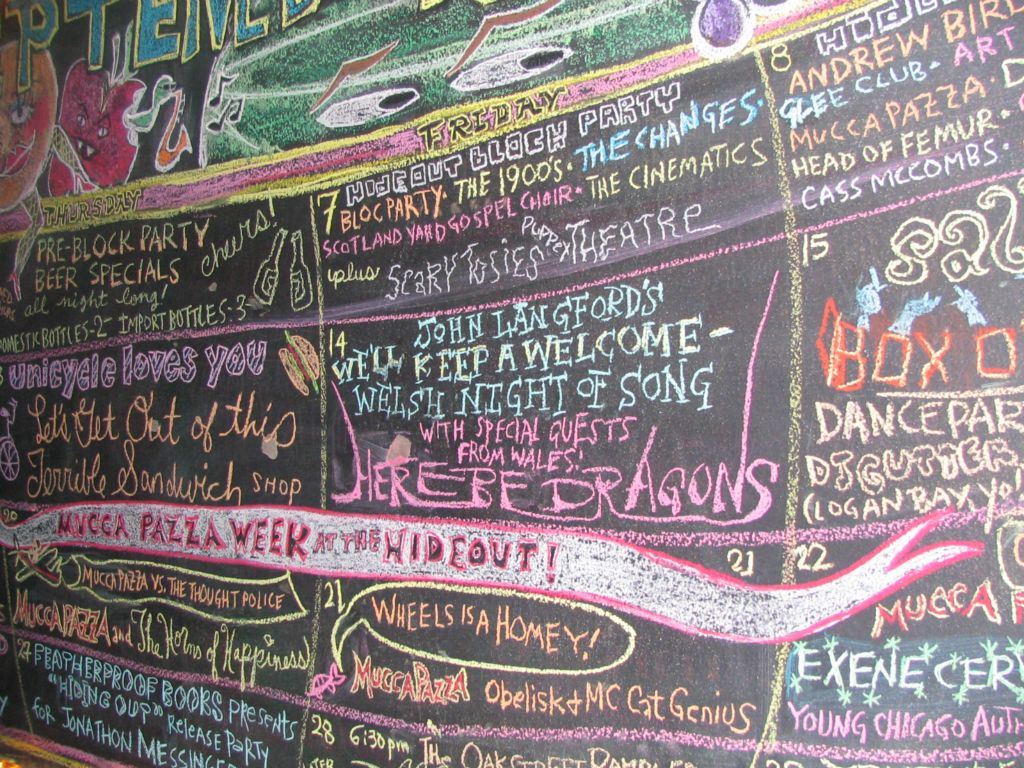 PTEMB
THURSDAY
FRIDAY
PRE-BLOCK PARTY
BEER SPECIALS
all night long!
DOMESTIC BOTTLES-2 IMPORT BOTTLES-3
cheers!
7
HIDEOUT BLOCK PARTY
BLOC PARTY· THE 1900'S· THE CHANGES·
SCOTLAND YARD GOSPEL CHOIR· THE CINEMATICS
plus SCARY TOSIES PUPPET THEATRE
8
HIDEO
ANDREW BIRD
GLEE CLUB· ART
MUCCA PAZZA· D
HEAD OF FEMUR·
CASS MCCOMBS·
unicycle loves you
Let's Get Out of this
Terrible Sandwich SHOP
14
JOHN LANGFORD'S
WE'LL KEEP A WELCOME-
WELSH NIGHT OF SONG
WITH SPECIAL GUESTS
FROM WALES!
HERE BE DRAGONS
15
BOX O
DANCE PAR
DJ GUTTER
(LOGAN BAY, YO
20
MUCCA PAZZA WEEK AT THE HIDEOUT!
MUCCA PAZZA VS. THE THOUGHT POLICE
MUCCA PAZZA and The Horns of Happiness!
21
21
WHEELS IS A HOMEY!
MUCCA PAZZA Obelisk & MC Cat Genius
22
MUCCA P
EXENE CER
YOUNG CHICAGO AUTH
27
FEATHERPROOF BOOKS PRESENTS
"HIDING OUT" RELEASE PARTY
for JONATHON MESSINGE
28
6:30pm THE OAK STREET RAMBLER